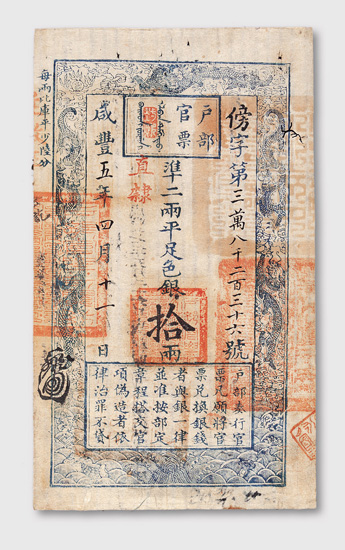 戶部
官票
傍字第三萬八千二百三十六號
準二兩平足色銀拾兩
直隸
咸豐五年四月十一日
每兩比庫平少陸分
戶部奏行官
票凡願將官
票兌換銀錢
者與銀一律
並准按部定
章程搭交官
項偽造者依
律治罪不貸